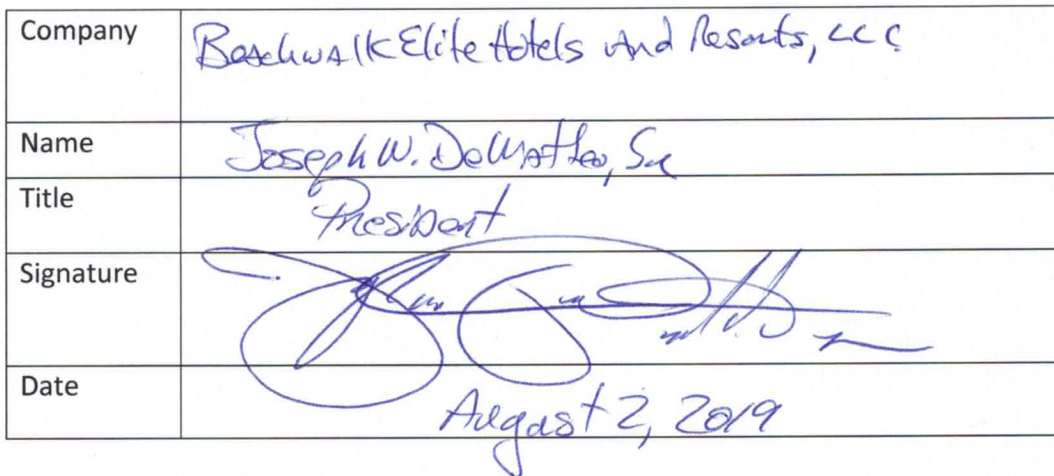 Company Beachwalk Elite Hotels and Resorts, LLC
Name Joseph W. DeMatteo, Sr
Title President
Signature
Date August 2, 2019